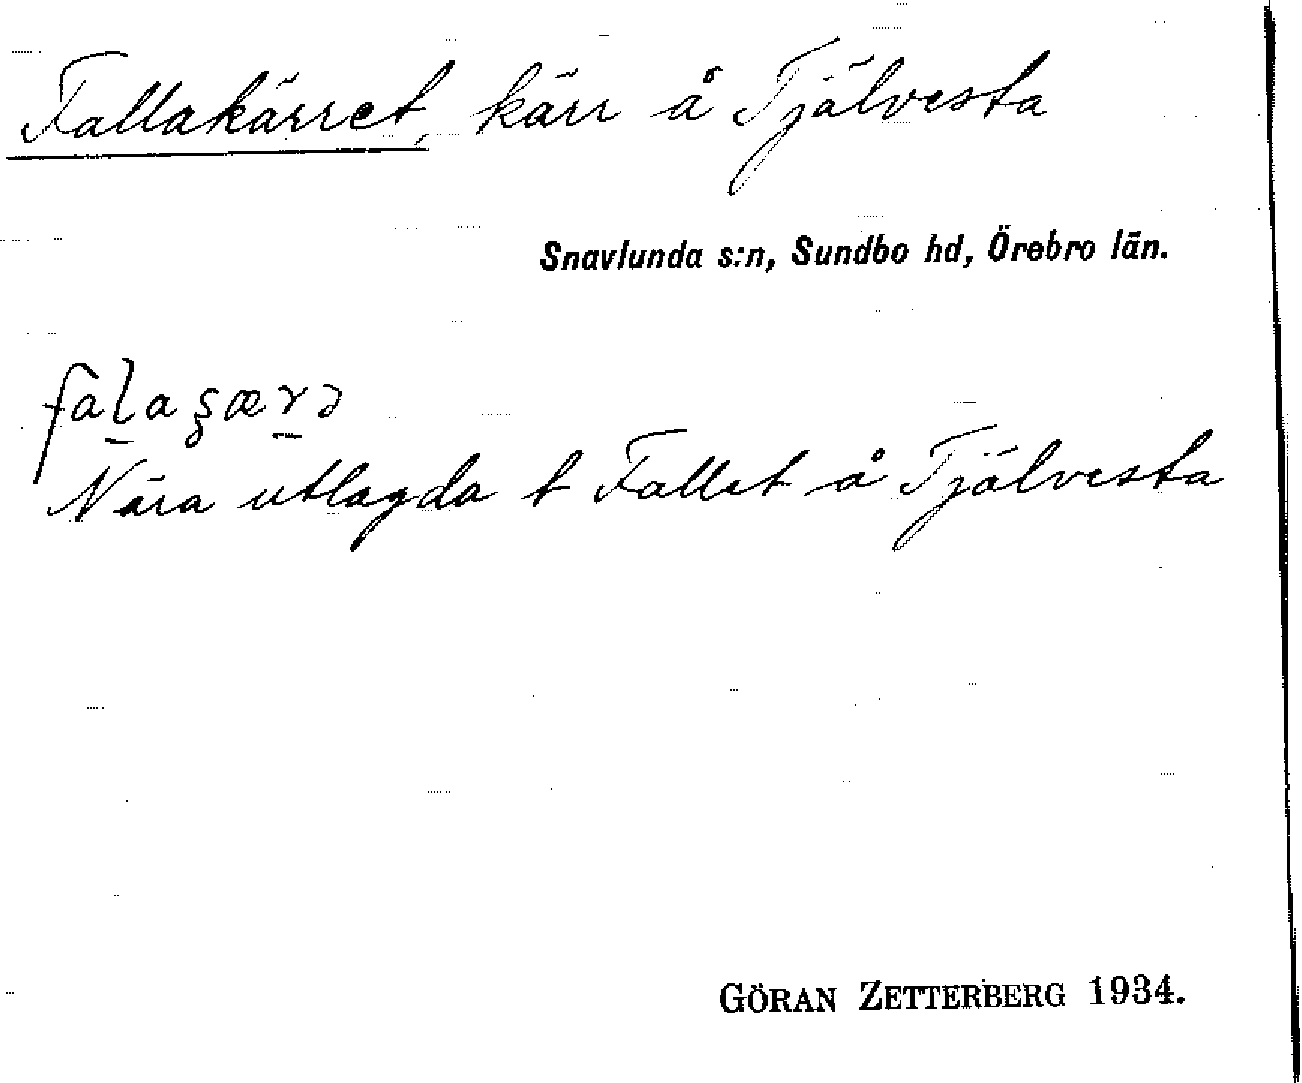 Fallakärret, kärr å Tjälvesta
Snavlunda s:n, Sundbo hd, Örebro län.
Nära utlagda t Fallet å Tjälvesta
GÖRAN ZETTERBERG 1934.